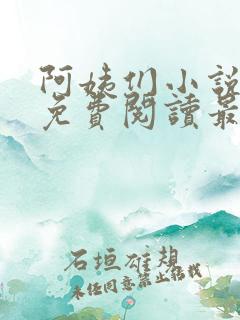 阿姨们小説
免費閱讀最
石垣雄想
未任同意禁止转载